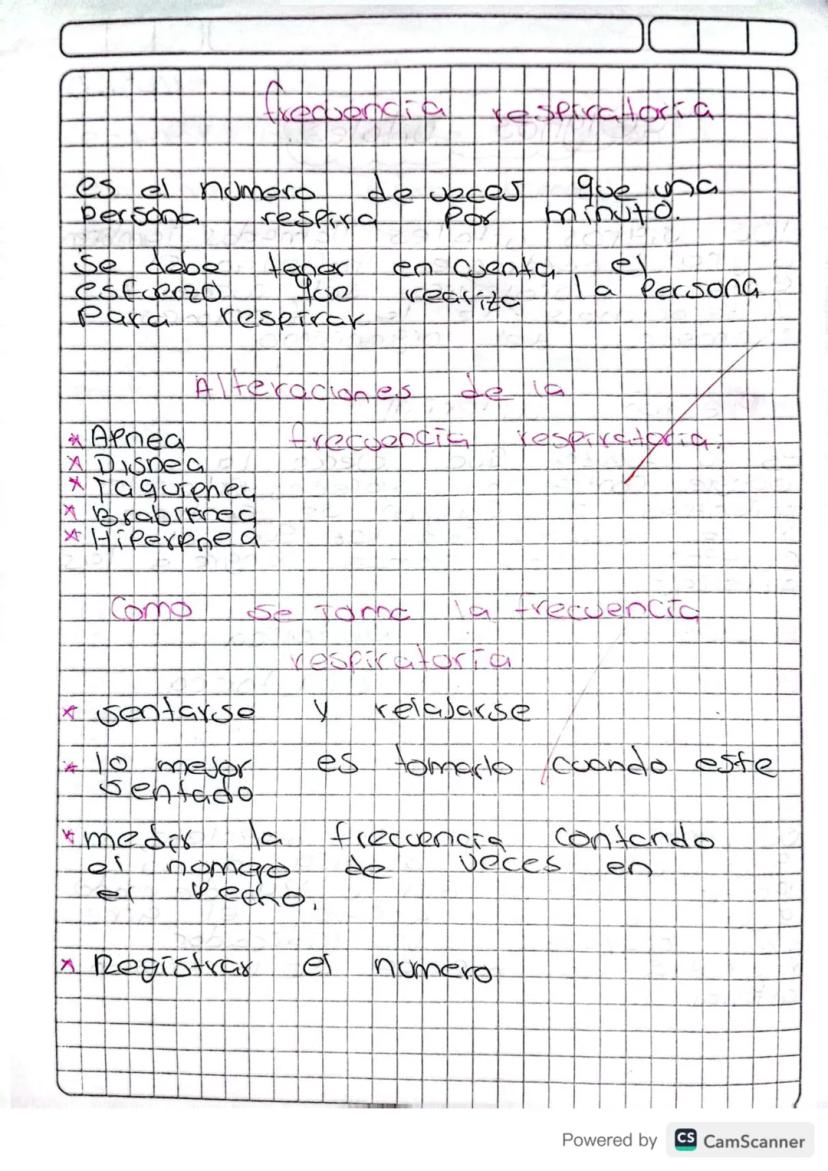 frecuencia respiratoria
es el numero de veces que una
persona respira por minuto.
se debe tener en cuenta el
esfuerzo que realiza la persona
para respirar
Alteraciones de la
frecuencia respiratoria.
* Apnea
* Disnea
* Taquipnea
* Brabipnea
* Hiperpnea
Como se toma la frecuencia
respiratoria
* sentarse y relajarse
* lo mejor es tomarlo cuando este
sentado
* medir la frecuencia contando
el nomero de veces en
el pecho.
* Registrar el numero
Powered by CS CamScanner